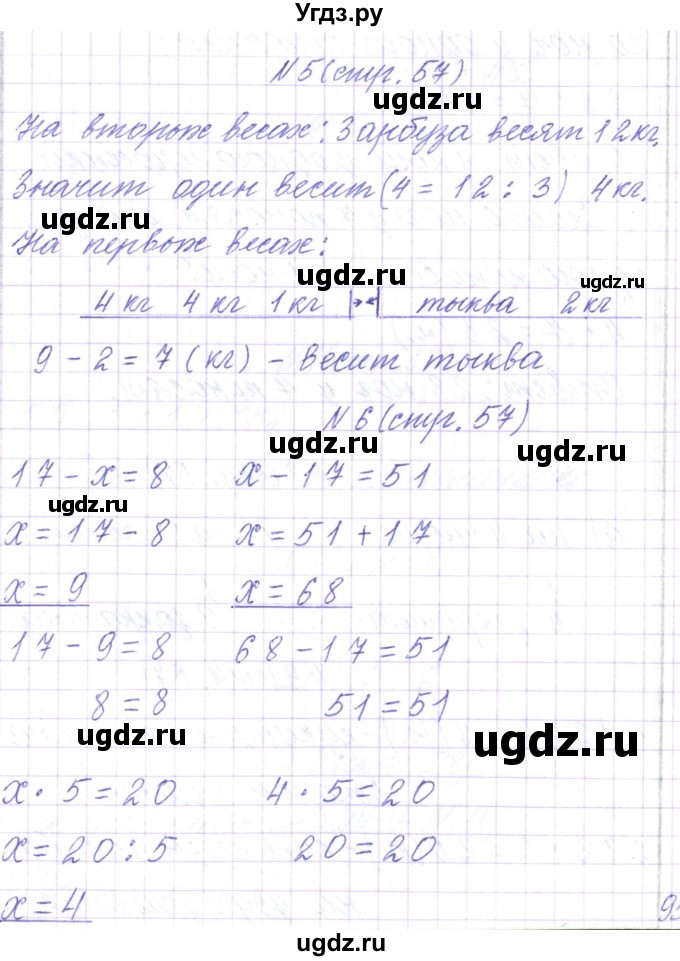 Угдз.ру
N 5 (стр. 57)
ugdz.ru
На вторых весах: 3 арбуза весят 12 кг.
Значит один весит (4 = 12 : 3) 4 кг.
ugdz.ru
На первых весах:
ugdz.ru
ugdz.ru
4 кг 4 кг 1 кг тыква 2 кг
9 - 2 = 7 (кг) - весит тыква
N 6 (стр. 57)
ugdz.ru
17 - х = 8 х - 17 = 51
ugdz.ru
х = 17 - 8 х = 51 + 17
х = 9 х = 68
ugdz.ru
17 - 9 = 8 68 - 17 = 51
8 = 8 51 = 51
ugdz.ru
ugdz.ru
х · 5 = 20 4 · 5 = 20
х = 20 : 5 20 = 20
ugdz.ru
х = 4
ugdz.ru